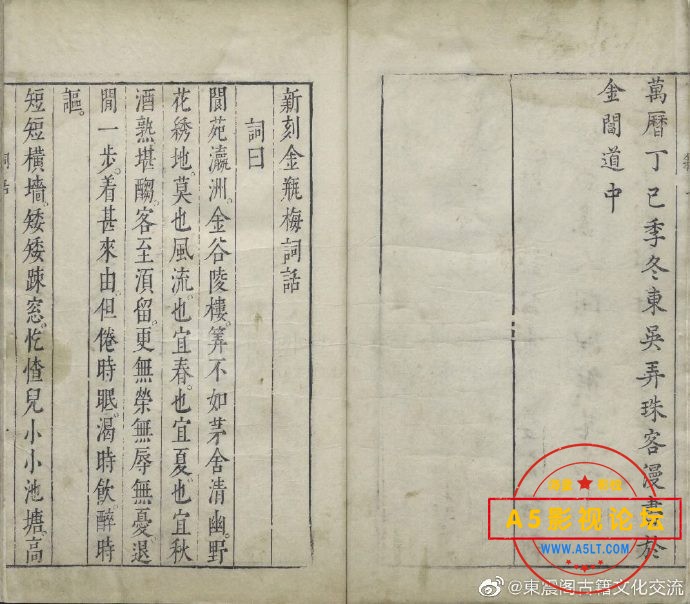 萬曆丁巳季冬東吳弄珠客漫書於
金閶道中
新刻金瓶梅詞話
詞曰
閬苑瀛洲。金谷陵樓。筭不如茅舍清幽。野
花綉地。莫也風流。也宜春。也宜夏。也宜秋
酒熟堪䤘。客至湏留。更無榮無辱無憂。退
閒一步。着甚來由。但倦時眠。渴時飲。醉時
謳。
短短橫墻。矮矮踈窓。忔㤞兒小小池塘。高
詞話
A5影视论坛
WWW.A5LT.COM
@東震阁古籍文化交流